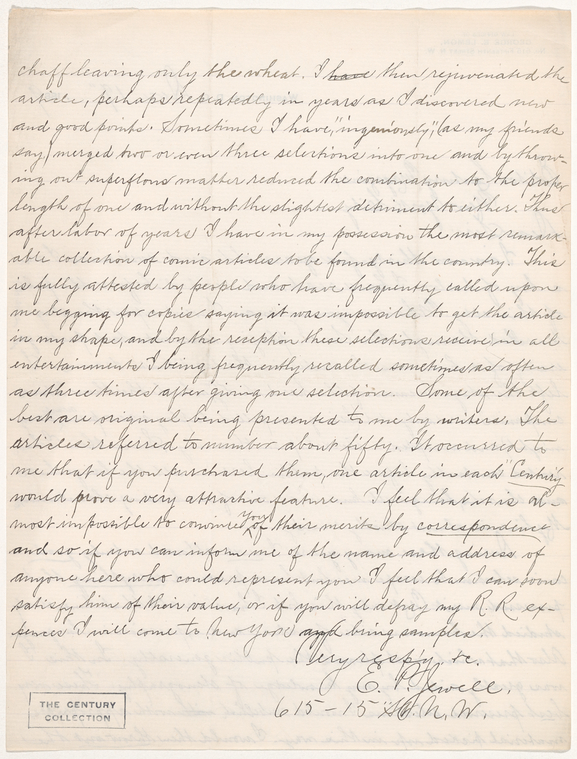 chaff leaving only the wheat. I have then rejuvenated the
article, perhaps repeatedly in years as I discovered new
and good points. Sometimes I have, "ingeniously", (as my friends
say) merged two or even three selections into one and by throw-
ing out superflous matter reduced the combination to the proper
length of one and without the slightest detriment to either. Thus
after labor of years I have in my possession the most remark-
able collection of comic articles to be found in the country. This
is fully attested by people who have frequently called upon
me begging for copies saying it was impossible to get the article
in my shape, and by the reception these selections receive in all
entertainments I being frequently recalled sometimes as often
as three times after giving one selection. Some of the
best are original being presented to me by writers. The
articles referred to number about fifty. It occurred to
me that if you purchased them, one article in each "Century"
would prove a very attractive feature. I feel that it is al-
most impossible to convince you of their merits by correspondence
and so if you can inform me of the name and address of
anyone here who could represent you I feel that I can soon
satisfy him of their value, or if you will defray my R.R. ex-
penses I will come to New York and bring samples.
Very resp'y, &c.
E. P. Jewell.
615-15 St. N.W.
THE CENTURY
COLLECTION